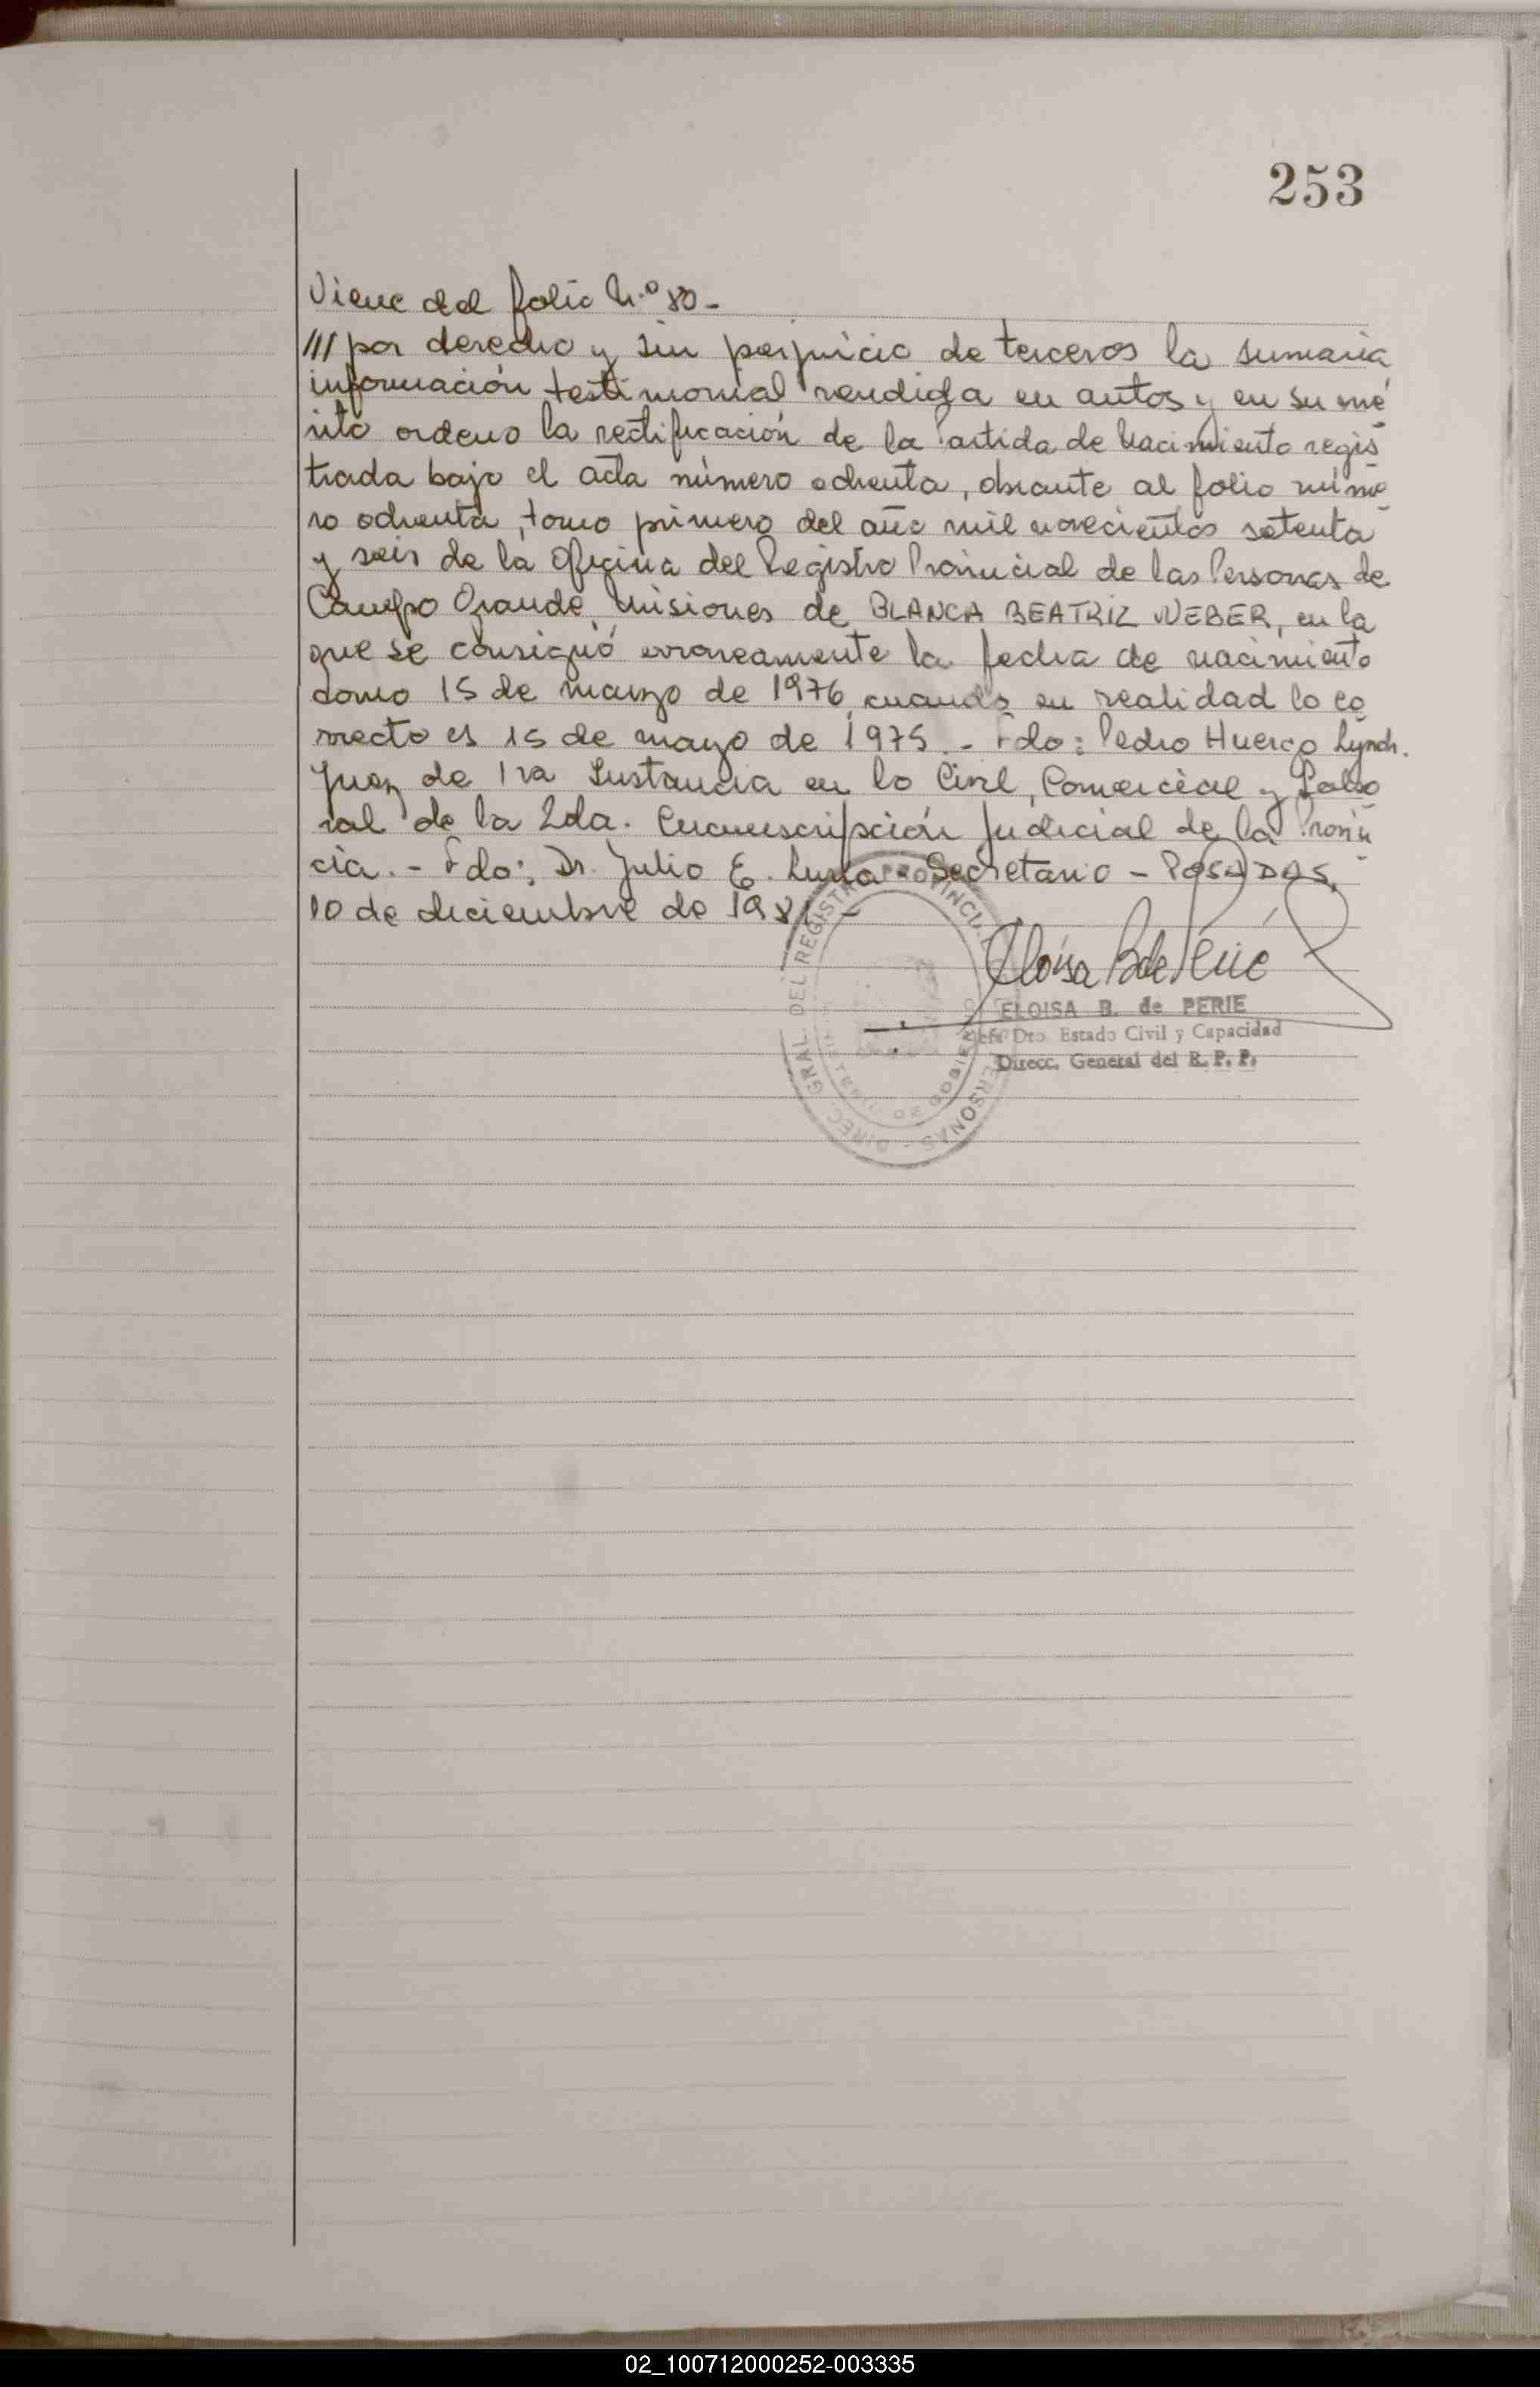 253
Viene del folio N.º 80-
/// por derecho y sin perjuicio de terceros la sumaria
información testimonial rendida en autos y en su mé
rito ordeno la rectificación de la Partida de Nacimiento regis
trada bajo el acta número ochenta, obrante al folio núme
ro ochenta, tomo primero del año mil novecientos setenta
y seis de la Oficina del Registro Provincial de las Personas de
Campo Grande, Misiones de BLANCA BEATRIZ WEBER, en la
que se consignó erroneamente la fecha de nacimiento
como 15 de marzo de 1976, cuando en realidad lo co
rrecto es 15 de mayo de 1975.- Fdo: Pedro Huergo Lynch.
Juez de 1ra Instancia en lo Civil, Comercial y Labo
ral de la 2da. Circunscripción Judicial de la Provin
cia.- Fdo: Dr. Julio E. Luna Secretario - POSADAS,
10 de diciembre de 1981 -
Eloísa B de Perié
ELOISA B. de PERIE
Jefe Dto. Estado Civil y Capacidad
Direcc. General del R. P. P.
DIREC. GRAL. DEL REGISTRO PROVINCIAL PERSONAS
DE GOBIERNO
02_100712000252-003335